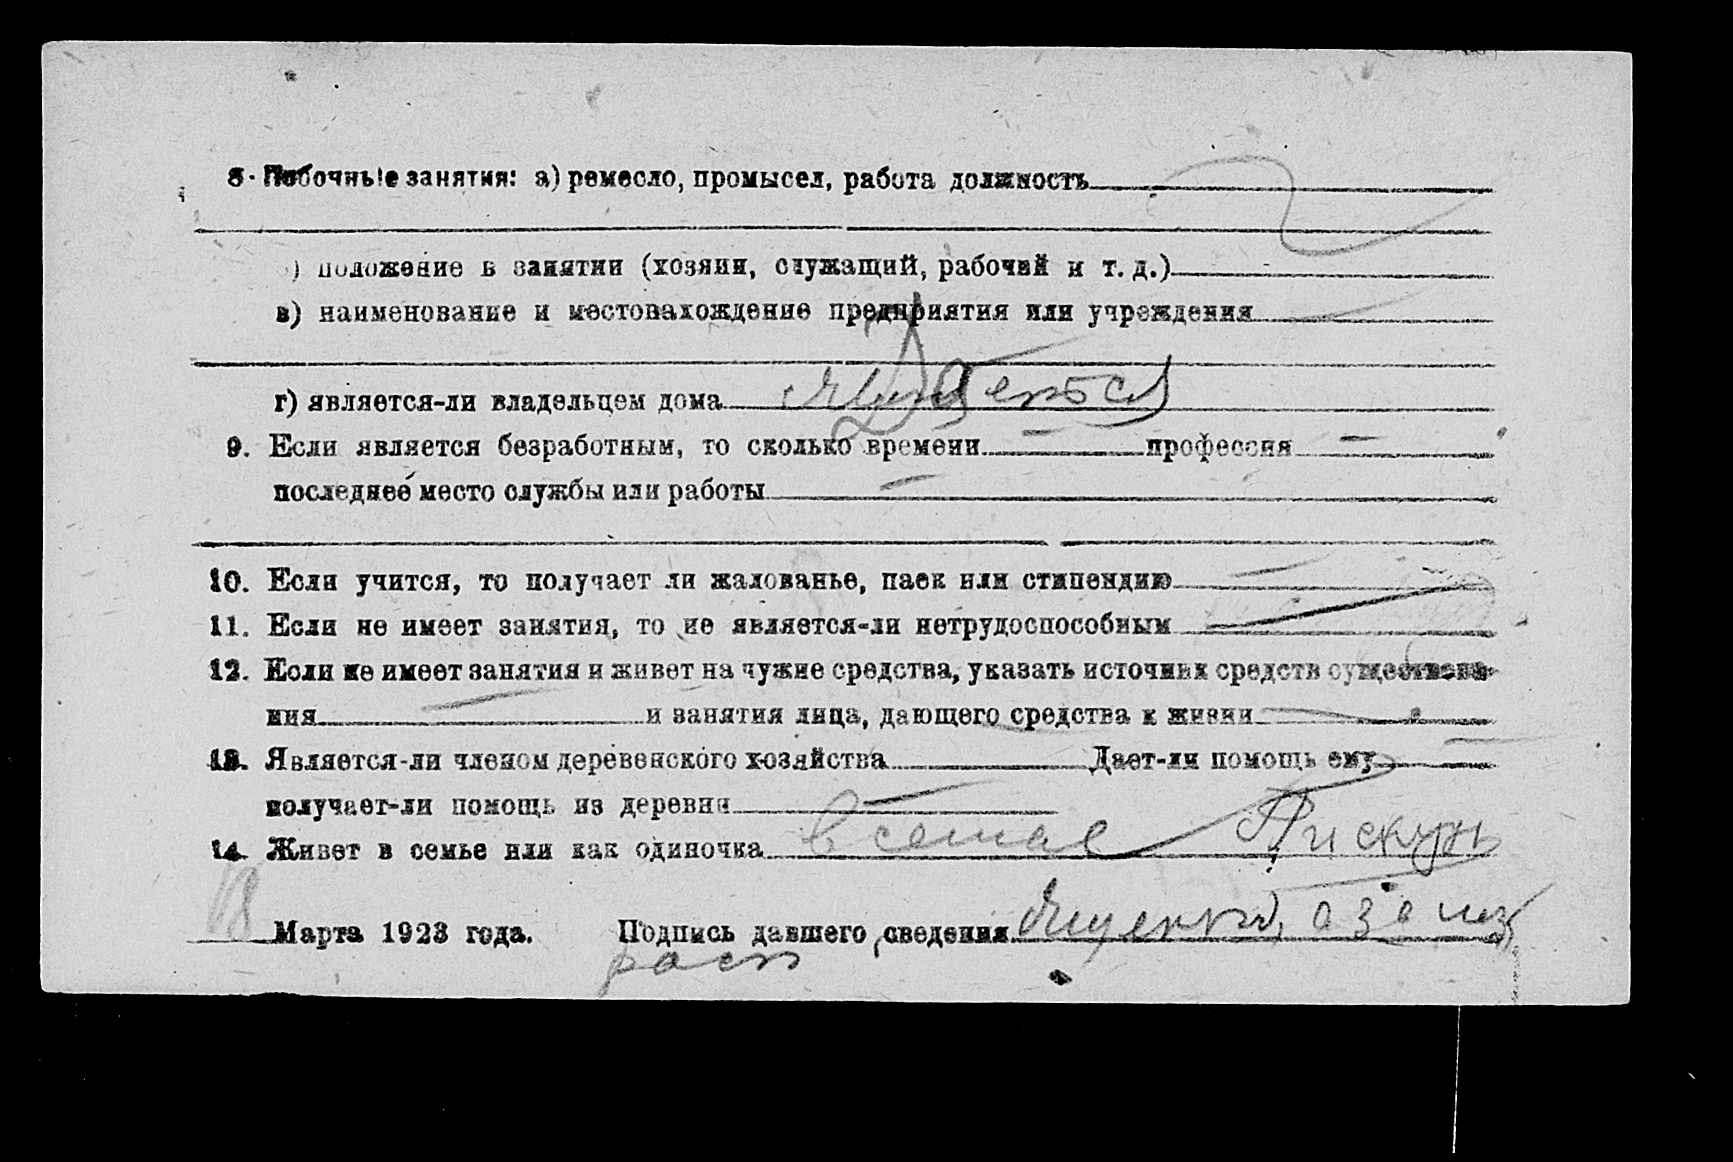 8. Побочные занятия: а) ремесло, промысел, работа должность
б) положение в занятии (хозяин, служащий, рабочий и т. д.)
в) наименование и местонахождение предприятия или учреждения
г) является-ли владельцем дома
9. Если является безработным, то сколько времени — профессия —
последнее место службы или работы —
10. Если учится, то получает ли жалованье, паек или стипендию —
11. Если не имеет занятия, то не является-ли нетрудоспособным —
12. Если не имеет занятия и живет на чужие средства, указать источник средств существова-
ния — и занятия лица, дающего средства к жизни —
13. Является-ли членом деревенского хозяйства Дает-ли помощь ему —
получает-ли помощь из деревни —
14. Живет в семье или как одиночка в семье Пискунь
18 Марта 1923 года. Подпись давшего сведения Ященко, а за не
расп